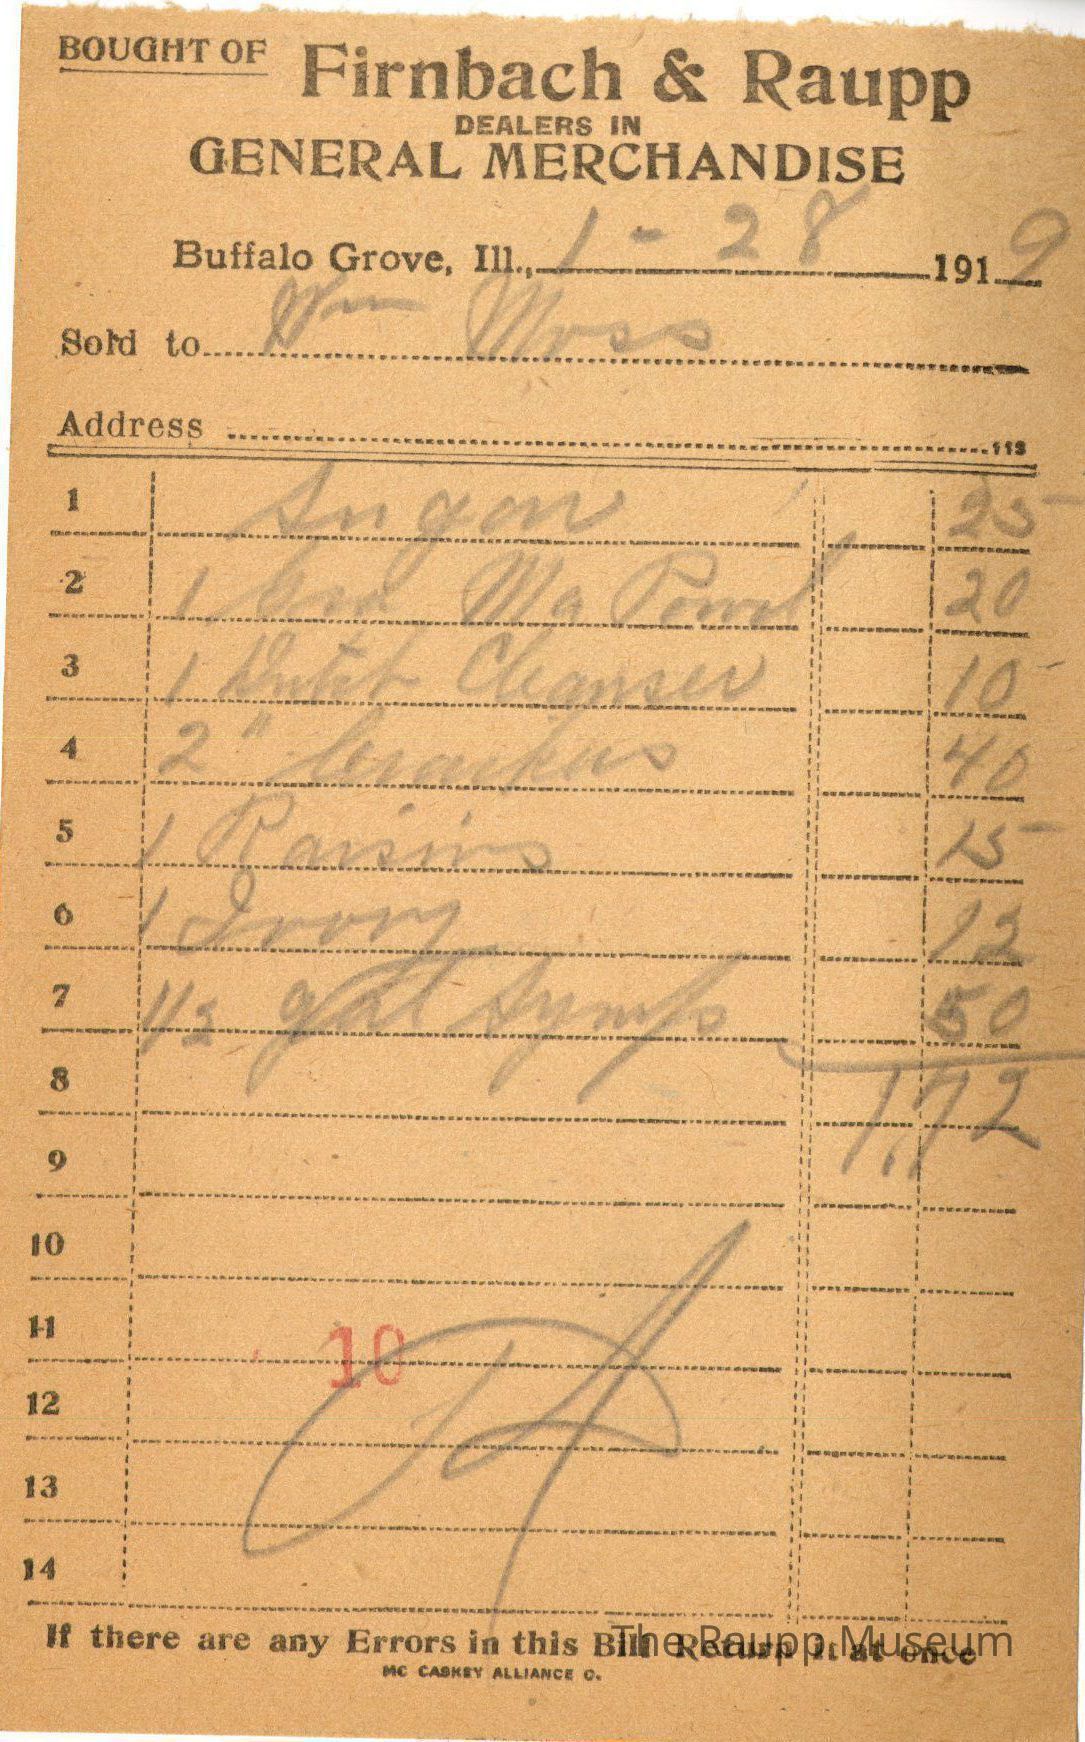 BOUGHT OF Firnbach & Raupp
DEALERS IN
GENERAL MERCHANDISE
Buffalo Grove, Ill., 1 - 28 1919
Sold to Wm Moss
Address 113
1 Sugar 25
2 1 Wa Powd 20
3 1 Dutch Cleanser 10
4 2 " Crackers 40
5 1 Raisins 15
6 1 Ivory 12
7 1/2 gal Syrup 50
8 1.72
9
10
11 10
12
13
14
If there are any Errors in this Bill Return it at once
The Raupp Museum
MC CASKEY ALLIANCE O.